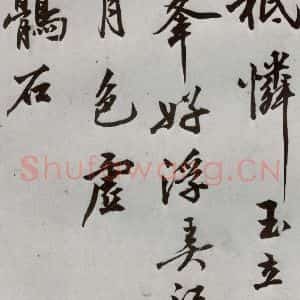 祗憐玉立
峯好浮
月色虛
鶻石
Shufawang.CN